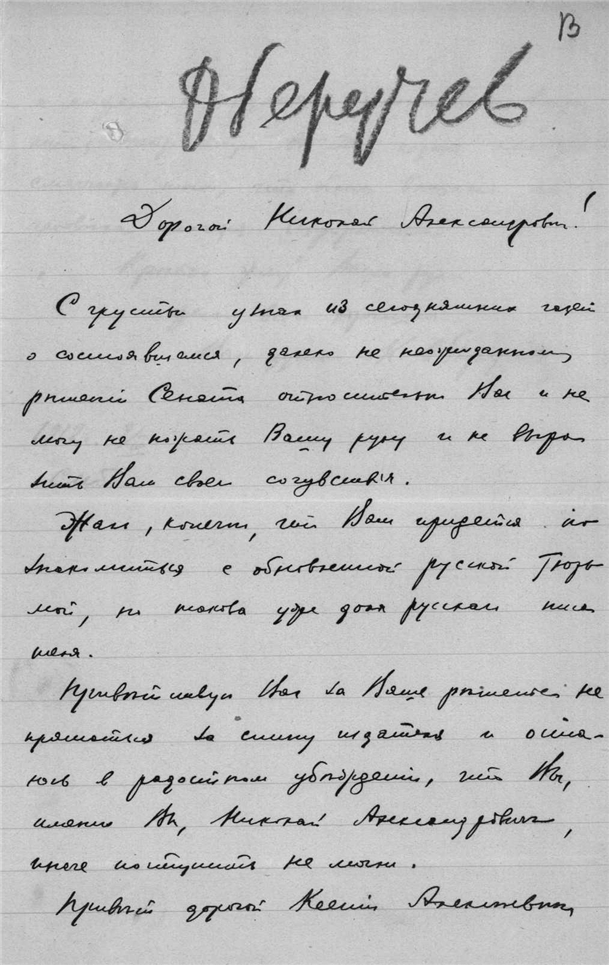 В
Оберучев
Дорогой Николай Александрович!
С грустью узнал из сегодняшних газет
о состоявшемся, далеко не неожиданном
решении Сената относительно Вас и не
могу не пожать Вашу руку и не выра
зить Вам своего сочувствия.
Жаль, конечно, что Вам придется по
знакомиться с обновленной русской тюрь
мой, но такова уже доля русскаго писа
теля.
Приветствую Вас за Ваше решение не
прятаться за спину издателя и оста-
юсь в радостном убеждении, что Вы,
именно Вы, Николай Александрович,
иначе поступить не могли.
Привет дорогой Ксении Алексеевне